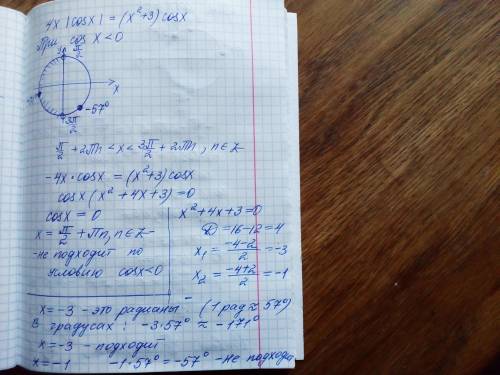 4x|cosx| = (x²+3)cosx
При cos x < 0
π/2
x
-57°
3π/2
π/2 + 2πn < x < 3π/2 + 2πn, n∈Z
-4x·cosx = (x²+3)cosx
cosx(x²+4x+3)=0
cosx = 0
x = π/2 + πn, n∈Z
-не подходит по
условию cosx<0
x²+4x+3=0
D=16-12=4
x₁ = (-4-2)/2 = -3
x₂ = (-4+2)/2 = -1
x=-3 - это радианы (1 рад ≈ 57°)
в градусах: -3·57° ≈ -171°
x=-3 - подходит
x=-1 -1·57°=-57° -не подходи